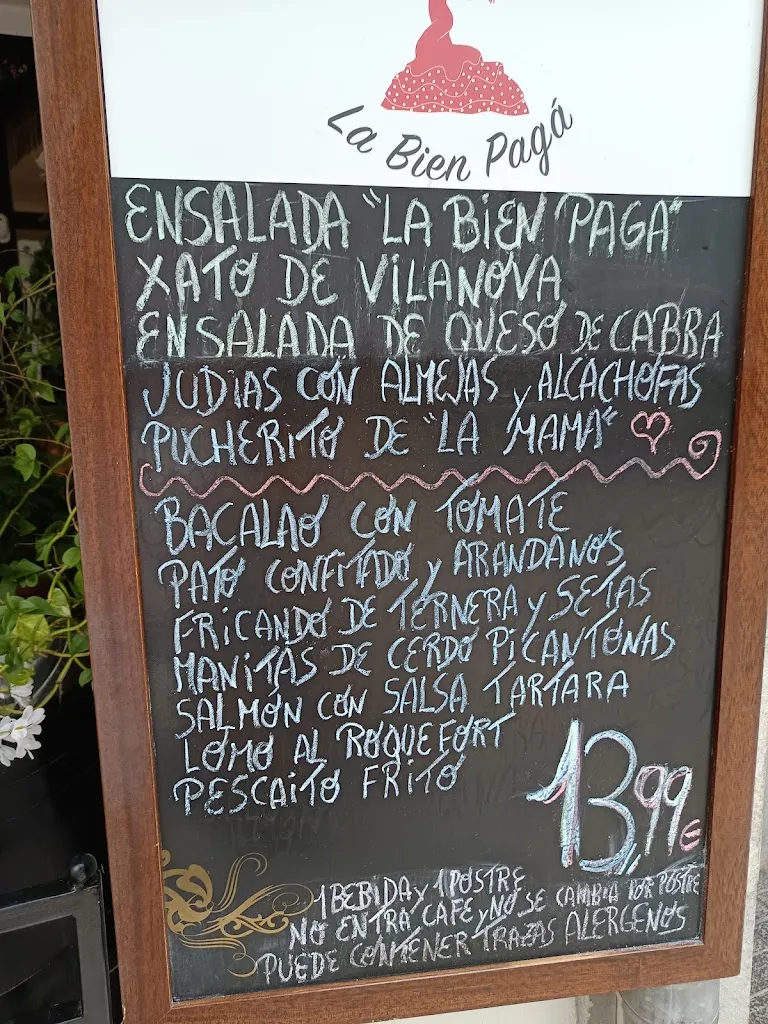 La Bien Pagá
ENSALADA "LA BIEN PAGA"
XATO DE VILANOVA
ENSALADA DE QUESO DE CABRA
JUDIAS CON ALMEJAS y ALCACHOFAS
PUCHERITO DE "LA MAMA"
BACALAO CON TOMATE
PATO CONFITADO y ARANDANOS
FRICANDO DE TERNERA y SETAS
MANITAS DE CERDO PICANTONAS
SALMÓN CON SALSA TARTARA
LOMO AL ROQUEFORT
PESCAITO FRITO
13,99€
1 BEBIDA y 1 POSTRE
NO ENTRA CAFE y NO SE CAMBIA POR POSTRE
PUEDE CONTENER TRAZAS ALERGENOS